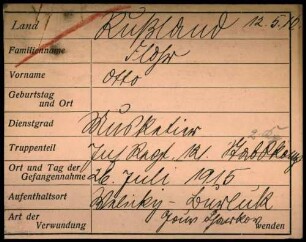 Land Rußland 12.5.16
Familienname Flohr
Vorname Otto
Geburtstag
und Ort
Dienstgrad Musketier
Truppenteil Inf Regt. 121.
Ort und Tag der
Gefangennahme 26. Juli 1915
Aufenthaltsort Weliky-Burluk
Art der
Verwundung Gouv. Charkow
wenden